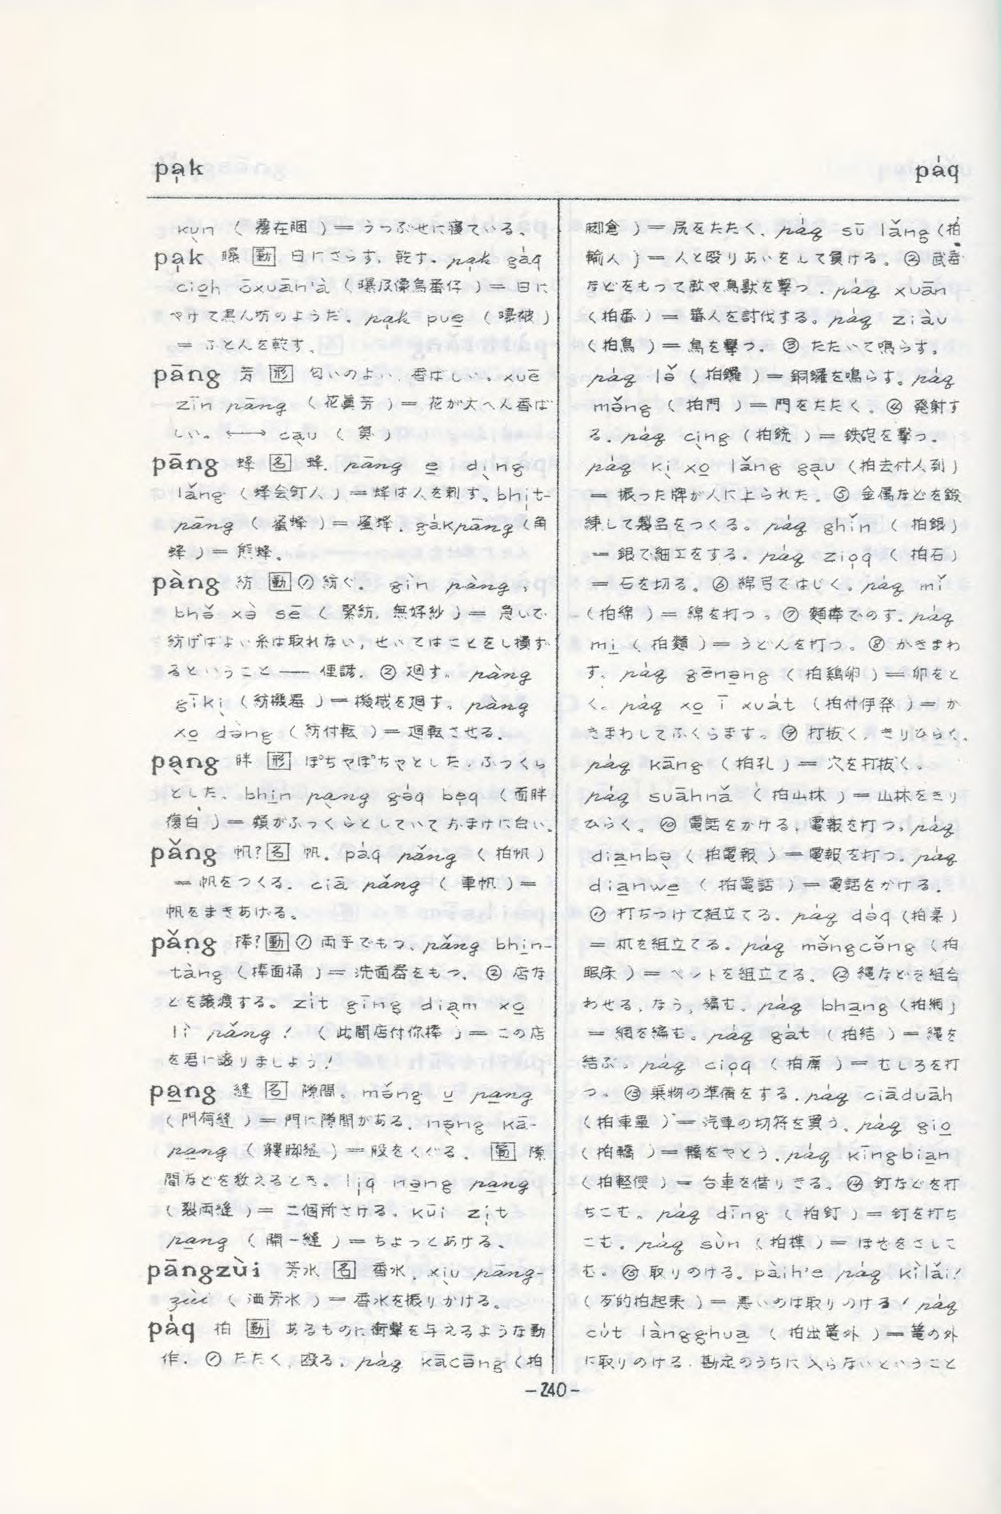 pa̍k
páq
kun ( 覆在睏 ) = うつぶせに寝ている。
pa̍k 曝 動 日にさらす, 乾す. pa̍k gáq
cioh ōxuān'à ( 曝及像烏番仔 ) = 日に
やけて黒ん坊のようだ. pa̍k pue ( 曝被 )
= ふとんを乾す.
pāng 芳 形 匂いのよい, 香ばしい。xuē
zīn pāng ( 花眞芳 ) = 花が大へん香ば
しい。←→ cau ( 臭 )
pāng 蜂 名 蜂. pāng e dìng
lǎng ( 蜂会釘人 ) = 蜂は人を刺す. bhit-
pāng ( 蜜蜂 ) = 蜜蜂. gákpāng (角
蜂 ) = 熊蜂.
pàng 紡 動 ① 紡ぐ. gìn pàng,
bhǒ xà sē ( 緊紡, 無好紗 ) = 急いで
紡げばよい糸は取れない, せいてはことをし損ず
るということ —— 俚諺. ② 廻す. pàng
gīki ( 紡機器 ) = 機械を廻す. pàng
xo dàng ( 紡付転 ) = 廻転させる.
pang 胖 形 ぽちゃぽちゃとした. ふっくら
とした. bhin pang gáq beq ( 面胖
復白 ) = 頬がふっくらとしていておまけに白い.
pǎng 帆? 名 帆. páq pǎng ( 拍帆 )
= 帆をつくる. ciā pǎng ( 車帆 ) =
帆をまきあげる。
pǎng 捧? 動 ① 両手でもつ. pǎng bhin-
tàng ( 捧面桶 ) = 洗面器をもつ. ② 店な
どを譲渡する。zit gīng diam xo
lì pǎng ! ( 此間店付你捧 ) = この店
を君に譲りましょう!
pang 縫 名 隙間. mǒng u pang
( 門有縫 ) = 門に隙間がある. nəng kā-
pang ( 軁脚縫 ) = 股をくぐる. 量 隙
間などを数えるとき. liq nəng pang
( 裂両縫 ) = 二個所さける. kūi zit
pang ( 開一縫 ) = ちょっとあける.
pāngzùi 芳水 名 香水. xiu pāng-
zùi ( 洒芳水 ) = 香水を振りかける。
páq 拍 動 あるものに衝撃を与えるような動
作. ① たたく, 殴る. páq kācāng (拍
脚倉 ) = 尻をたたく. páq sū lǎng (拍
輸人 ) = 人と殴りあいをして負ける。② 武器
などをもって敵や鳥獣を撃つ. páq xuān
( 拍番 ) = 蕃人を討伐する。páq ziàu
( 拍鳥 ) = 鳥を撃つ. ③ たたいて鳴らす。
páq lǒ ( 拍鑼 ) = 銅鑼を鳴らす。páq
mǒng ( 拍門 ) = 門をたたく. ④ 発射す
る. páq cing ( 拍銃 ) = 鉄砲を撃つ.
páq ki xo lǎng gau ( 拍去付人到 )
= 振った牌が人に上られた. ⑤ 金属などを鍛
練して製品をつくる。páq ghǐn ( 拍銀 )
= 銀で細工をする. páq zioq ( 拍石 )
= 石を切る. ⑥ 綿弓ではじく. páq mǐ
( 拍綿 ) = 綿を打つ。⑦ 麺棒でのす. páq
mi ( 拍麺 ) = うどんを打つ。⑧ かきまわ
す. páq gēnəng ( 拍鶏卵 ) = 卵をと
く. páq xo ī xuát ( 拍付伊発 ) = か
きまわしてふくらます。⑨ 打抜く, きりひらく.
páq kāng ( 拍孔 ) = 穴を打抜く.
páq suāhnǎ ( 拍山林 ) = 山林をきり
ひらく。⑩ 電話をかける, 電報を打つ. páq
dianbə ( 拍電報 ) = 電報を打つ. páq
dianwe ( 拍電話 ) = 電話をかける.
⑪ 打ちつけて組立てる. páq dəq (拍桌 )
= 机を組立てる. páq mǒngcǒng ( 拍
眠床 ) = ベットを組立てる. ⑫ 縄などを組合
わせる, なう, 編む. páq bhang (拍網 )
= 網を編む。páq gát ( 拍結 ) = 縄を
結ぶ. páq cioq ( 拍蓆 ) = むしろを打
つ. ⑬ 乗物の準備をする. páq ciāduāh
( 拍車単 ) = 汽車の切符を買う. páq gio
( 拍轎 ) = 轎をやとう. páq kīngbian
( 拍軽便 ) = 台車を借りきる。⑭ 釘などを打
ちこむ. páq dīng ( 拍釘 ) = 釘を打ち
こむ. páq sùn ( 拍榫 ) = ほぞをさしこ
む. ⑮ 取りのける. pàih'e páq kìlǎi!
( 歹的拍起来 ) = 悪いのは取りのける! páq
cút làngghua ( 拍出籠外 ) = 篭の外
に取りのける. 勘定のうちに入らないということ
-240-